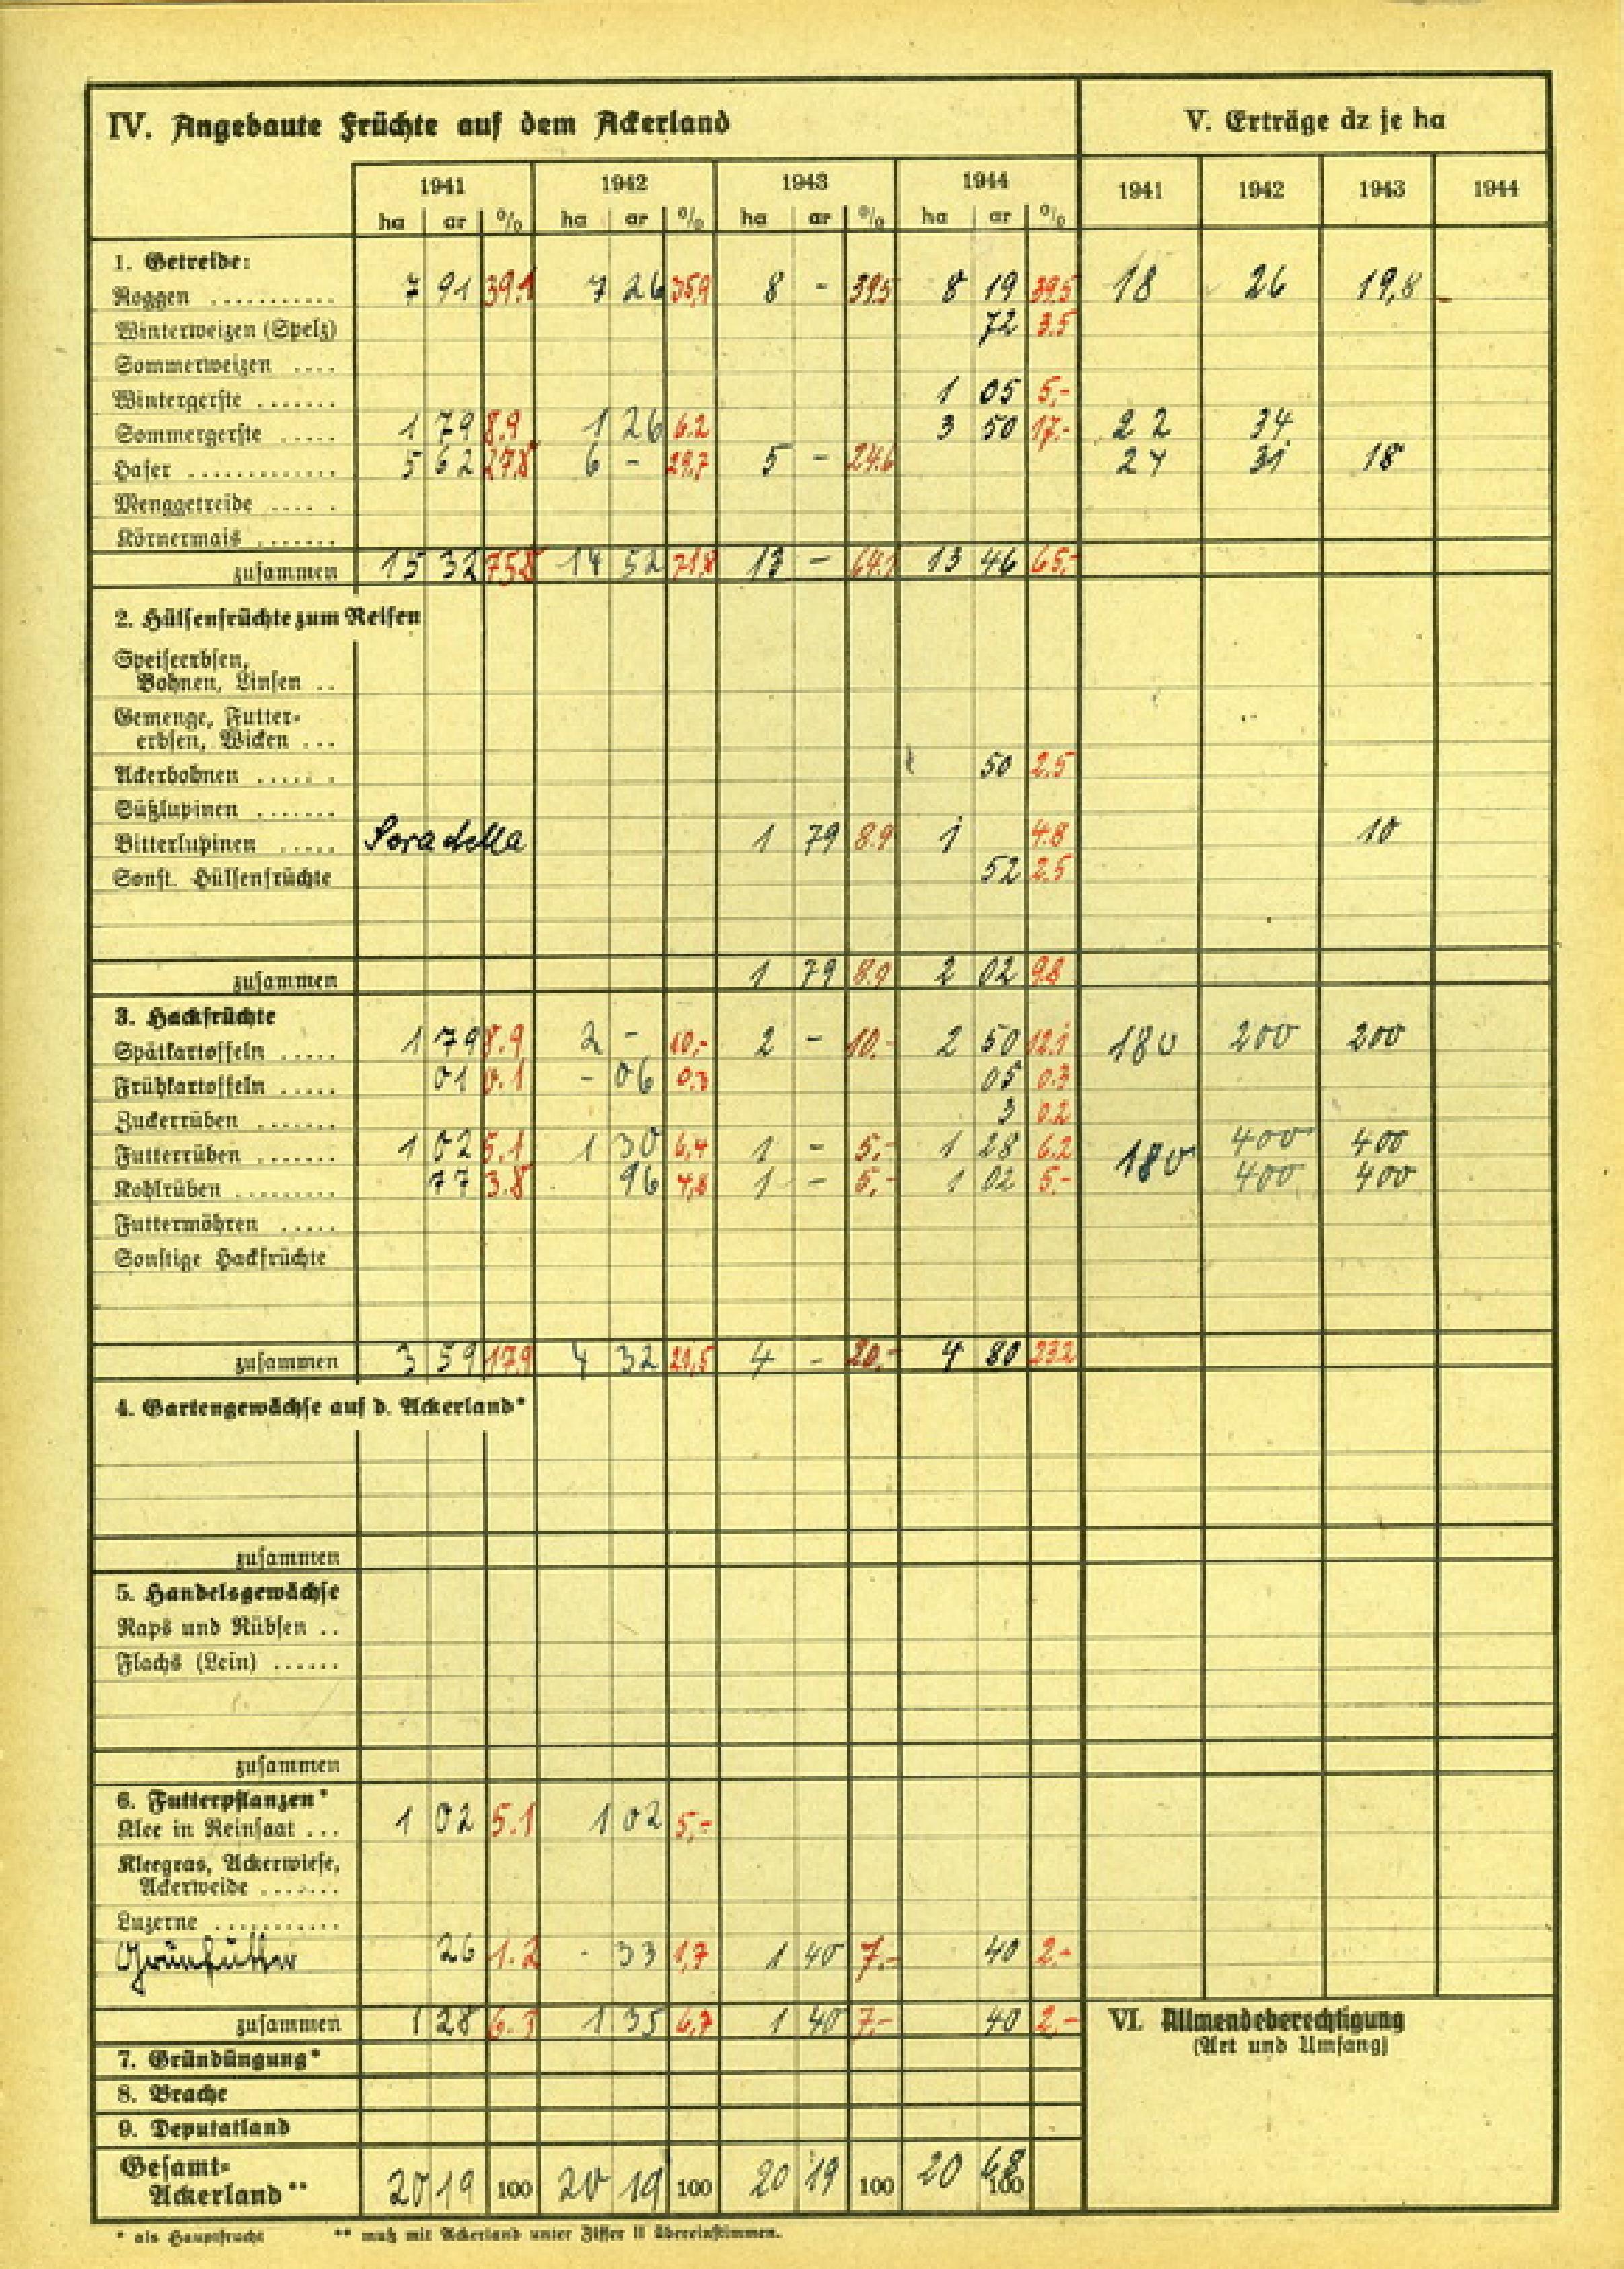 IV. Angebaute Früchte auf dem Ackerland V. Erträge dz je ha
1941 1942 1943 1944 1941 1942 1943 1944
ha ar % ha ar % ha ar % ha ar %
1. Getreide:
Roggen ........... 7 91 39.1 7 26 35,9 8 - 39.5 8 19 39.5 18 26 19,8
Winterweizen (Spelz) 72 3.5
Sommerweizen ....
Wintergerste ....... 1 05 5,-
Sommergerste ..... 1 79 8.9 1 26 6.2 3 50 17.- 22 34
Hafer ............. 5 62 27.8 6 - 29,7 5 - 24.6 24 31 18
Menggetreide .... .
Körnermais .......
zusammen 15 32 75.8 14 52 71,8 13 - 64.1 13 46 65,-
2. Hülsenfrüchte zum Reifen
Speiseerbsen,
Bohnen, Linsen ..
Gemenge, Futter-
erbsen, Wicken ...
Ackerbohnen ..... . 50 2.5
Süßlupinen .......
Bitterlupinen ..... Soradella 1 79 8.9 1 4.8 10
Sonst. Hülsenfrüchte 52 2.5
zusammen 1 79 8.9 2 02 9.8
3. Hackfrüchte
Spätkartoffeln ..... 1 79 8.9 2 - 10,- 2 - 10.- 2 50 12.1 180 200 200
Frühkartoffeln ..... 01 0.1 - 06 0.3 05 0.3
Zuckerrüben ....... 3 0.2
Futterrüben ....... 1 02 5.1 1 30 6,4 1 - 5.- 1 28 6.2 180 400 400
Kohlrüben ......... 77 3.8 96 4,8 1 - 5,- 1 02 5.- 400 400
Futtermöhren .....
Sonstige Hackfrüchte
zusammen 3 59 17.9 4 32 21,5 4 - 20.- 4 80 23.2
4. Gartengewächse auf d. Ackerland*
zusammen
5. Handelsgewächse
Raps und Rübsen ..
Flachs (Lein) ......
zusammen
6. Futterpflanzen*
Klee in Reinsaat ... 1 02 5.1 1 02 5,-
Kleegras, Ackerwiese,
Ackerweide .......
Luzerne ...........
Grünfutter 26 1.2 - 33 1,7 1 40 7.- 40 2.-
zusammen 1 28 6.3 1 35 6,7 1 40 7.- 40 2,-
VI. Allmendeberechtigung
(Art und Umfang)
7. Gründüngung*
8. Brache
9. Deputatland
Gesamt-
Ackerland** 20 19 100 20 19 100 20 19 100 20 68 100
* als Hauptfrucht ** muß mit Ackerland unter Ziffer II übereinstimmen.